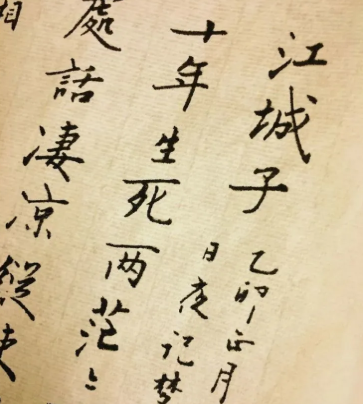 江城子
乙卯正月
日夜记梦
十年生死两茫〻
處話凄凉縱使
相